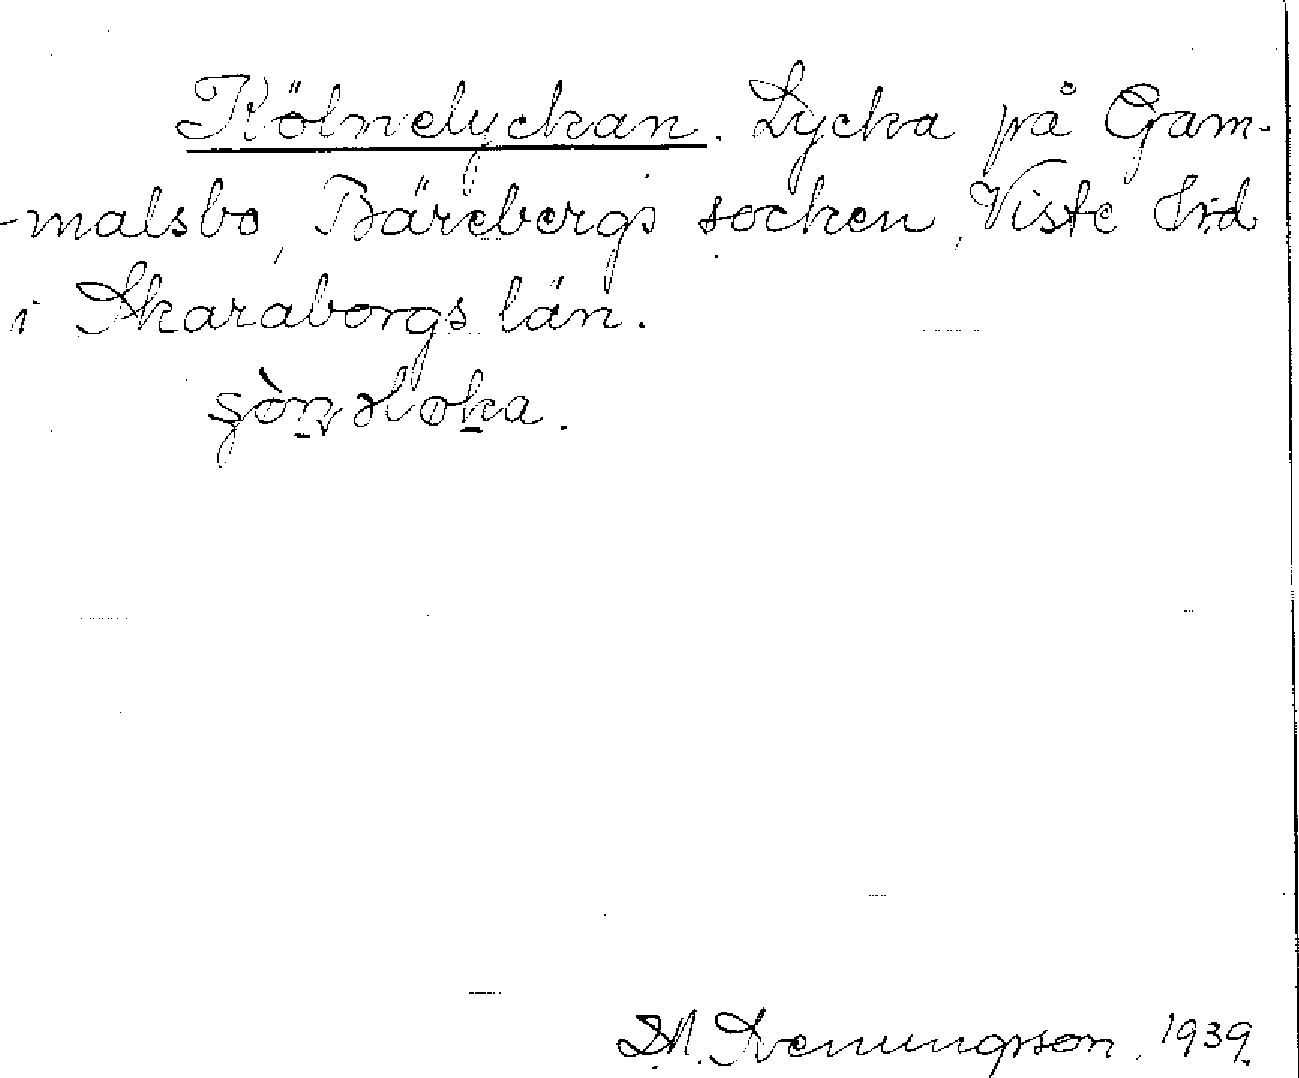 Kölnelyckan. Lycka på Gam-
-malsbo, Bärebergs socken, Viste hrd
i Skaraborgs län.
D.A. Svenungsson, 1939.